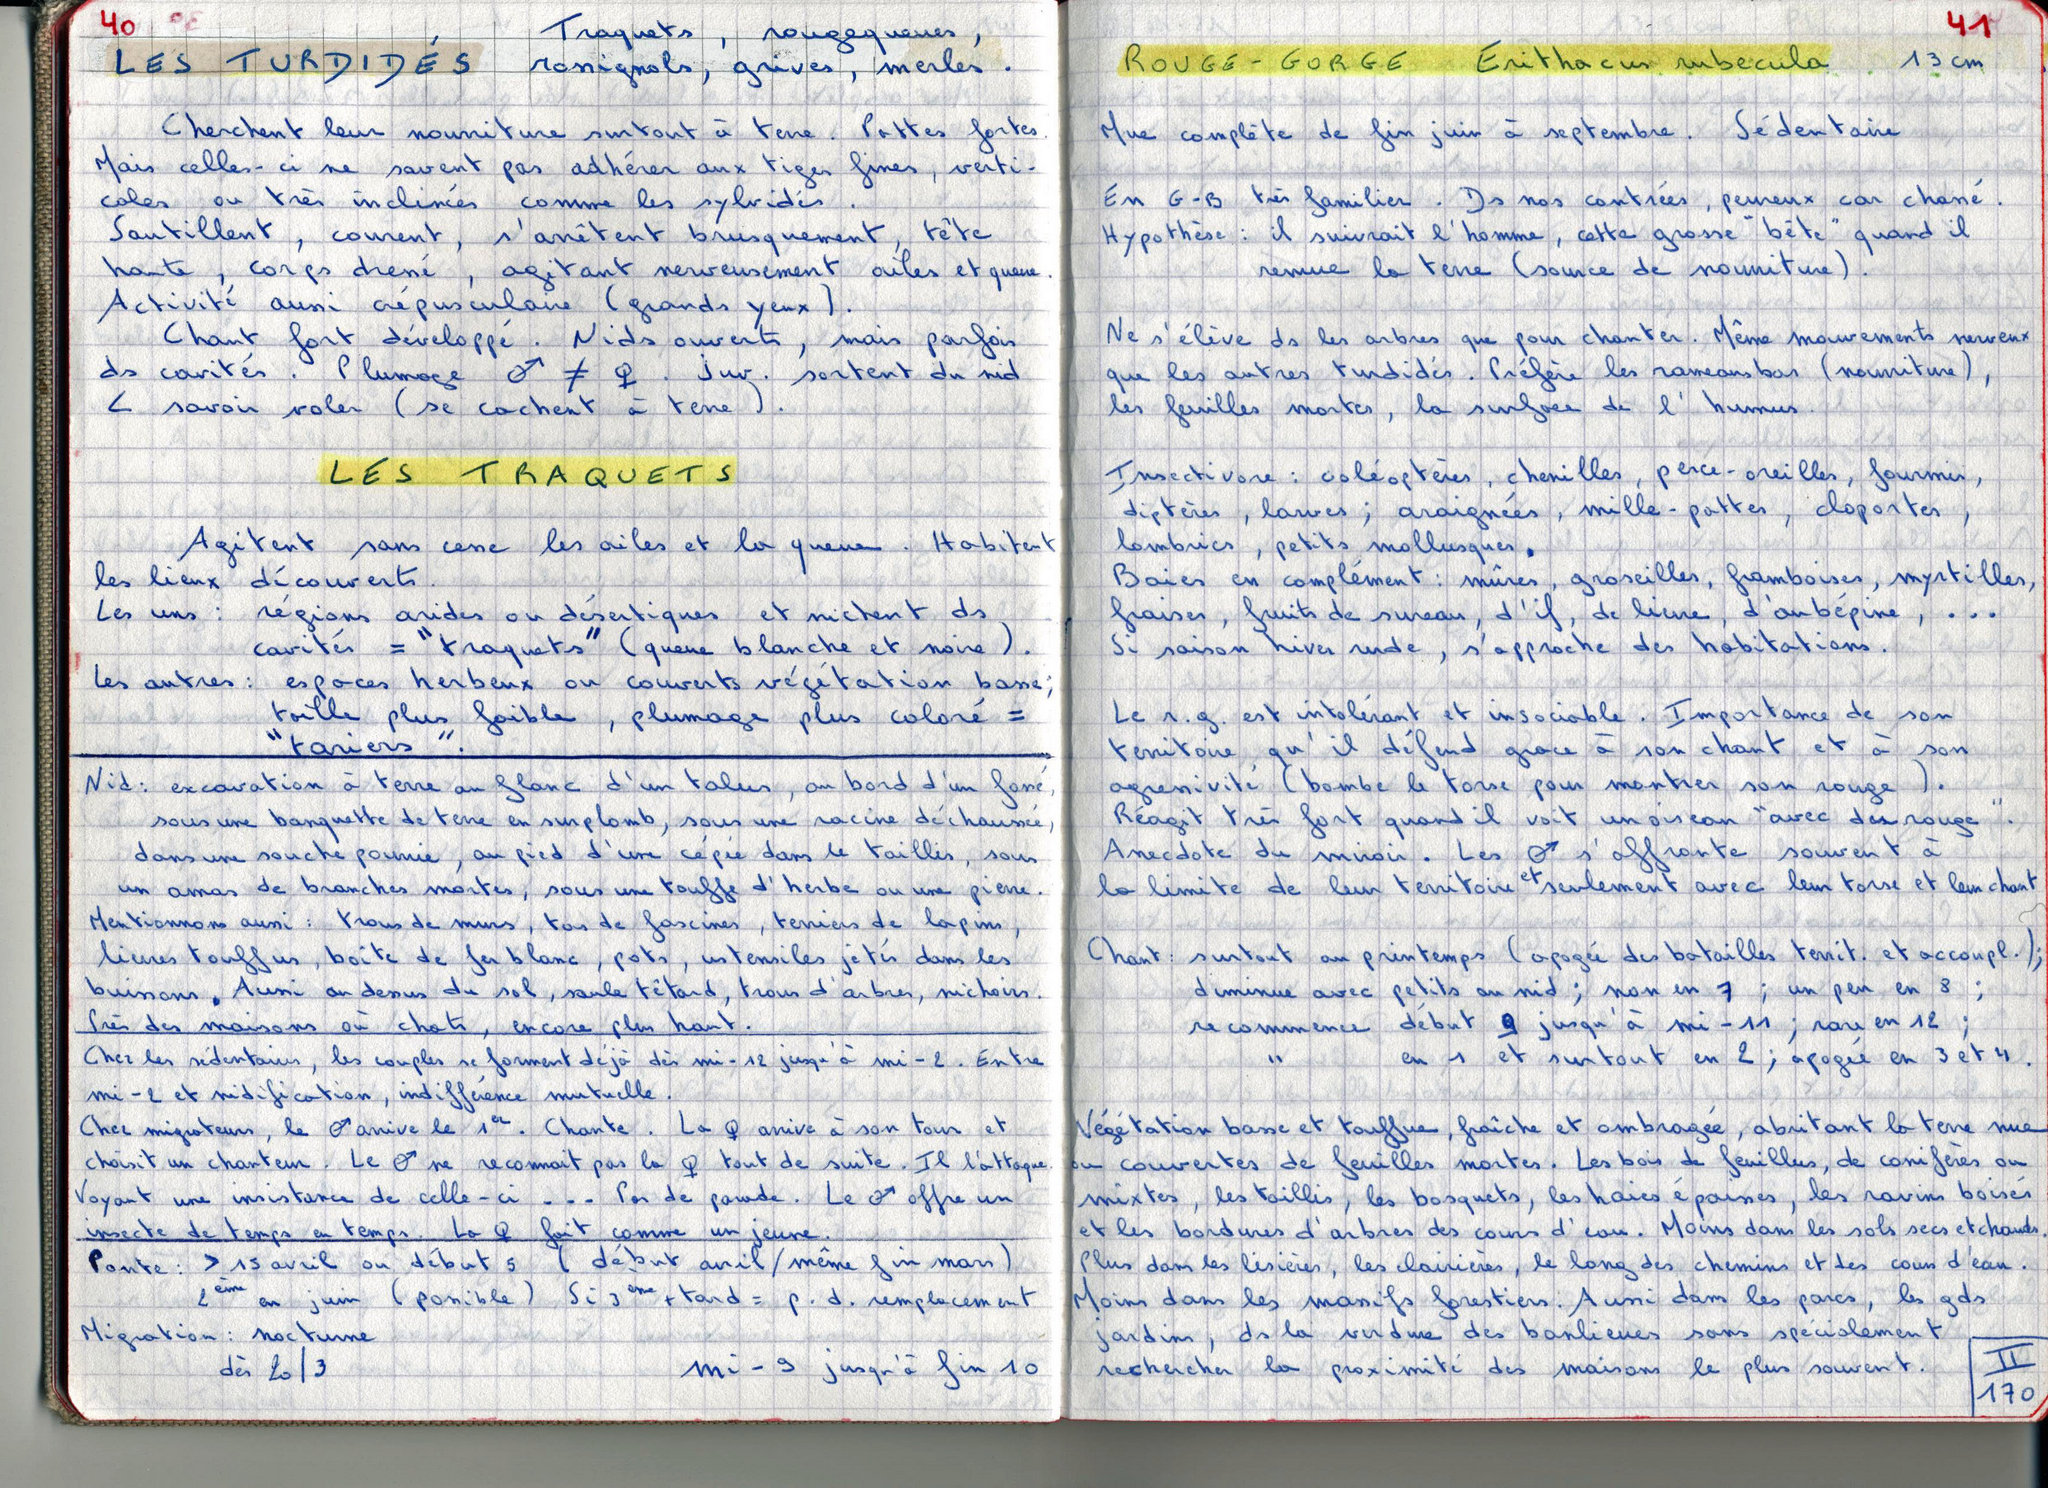 40
Traquets, rougequeues,
LES TURDIDÉS rossignols, grives, merles.
Cherchent leur nourriture surtout à terre. Pattes fortes.
Mais celles-ci ne savent pas adhérer aux tiges fines, verti-
cales ou très inclinées comme les sylvidés.
Sautillent, courent, s'arrêtent brusquement, tête
haute, corps dressé, agitant nerveusement ailes et queue.
Activité aussi crépusculaire (grands yeux).
Chant fort développé. Nids ouverts, mais parfois
ds cavités. Plumage ♂ ≠ ♀. Juv. sortent du nid
< savoir voler (se cachent à terre).
LES TRAQUETS
Agitent sans cesse les ailes et la queue. Habitent
les lieux découverts.
Les uns : régions arides ou désertiques et nichent ds
cavités = "traquets" (queue blanche et noire).
Les autres : espaces herbeux ou couverts végétation basse;
taille plus faible, plumage plus coloré =
"tariers".
Nid : excavation à terre au flanc d'un talus, au bord d'un fossé,
sous une banquette de terre en surplomb, sous une racine déchaussée,
dans une souche pourrie, au pied d'une cépée dans le taillis, sous
un amas de branches mortes, sous une touffe d'herbe ou une pierre.
Mentionnons aussi : trous de murs, tas de fascines, terriers de lapins,
lierres touffus, boîte de fer blanc, pots, ustensiles jetés dans les
buissons. Aussi au dessus du sol, saule têtard, trous d'arbres, nichoirs.
Près des maisons où chats, encore plus haut.
Chez les sédentaires, les couples se forment déjà dès mi-12 jusqu'à mi-2. Entre
mi-2 et nidification, indifférence mutuelle.
Chez migrateurs, le ♂ arrive le 1er. Chante. La ♀ arrive à son tour et
choisit un chanteur. Le ♂ ne reconnait pas la ♀ tout de suite. Il l'attaque.
Voyant une insistance de celle-ci ... Pas de parade. Le ♂ offre un
insecte de temps en temps. La ♀ fait comme un jeune.
Ponte : > 15 avril ou début 5 (début avril/même fin mars)
2ème en juin (possible) Si 3ème + tard = p. d. remplacement
Migration : nocturne
dès 20/3 mi-9 jusqu'à fin 10
41
ROUGE-GORGE Erithacus rubecula 13 cm
Mue complète de fin juin à septembre. Sédentaire
En G-B très familier. Ds nos contrées, peureux car chassé.
Hypothèse : il suivrait l'homme, cette grosse "bête" quand il
remue la terre (source de nourriture).
Ne s'élève ds les arbres que pour chanter. Même mouvements nerveux
que les autres turdidés. Préfère les rameaux bas (nourriture),
les feuilles mortes, la surface de l'humus.
Insectivore : coléoptères, chenilles, perce-oreilles, fourmis,
diptères, larves; araignées, mille-pattes, cloportes,
lombrics, petits mollusques.
Baies en complément : mûres, groseilles, framboises, myrtilles,
fraises, fruits de sureau, d'if, de lierre, d'aubépine, ...
Si saison hiver rude, s'approche des habitations.
Le r.g. est intolérant et insociable. Importance de son
territoire, qu'il défend grace à son chant et à son
agressivité (bombe le torse pour montrer son rouge).
Réagit très fort quand il voit un oiseau "avec du rouge".
Anecdote du miroir. Les ♂ s'affronte souvent à
la limite de leur territoire et seulement avec leur torse et leur chant
Chant : surtout au printemps (apogée des batailles territ. et accoupl.);
diminue avec petits au nid; non en 7; un peu en 8;
recommence début 9 jusqu'à mi-11; rare en 12;
" en 1 et surtout en 2; apogée en 3 et 4.
Végétation basse et touffue, fraîche et ombragée, abritant la terre nue
ou couvertes de feuilles mortes. Les bois de feuillus, de conifères ou
mixtes, les taillis, les bosquets, les haies épaisses, les ravins boisés
et les bordures d'arbres des cours d'eau. Moins dans les sols secs et chauds.
Plus dans les lisières, les clairières, le long des chemins et des cours d'eau.
Moins dans les massifs forestiers. Aussi dans les parcs, les gds
jardins, ds la verdure des banlieues sans spécialement
rechercher la proximité des maisons le plus souvent.
II
170